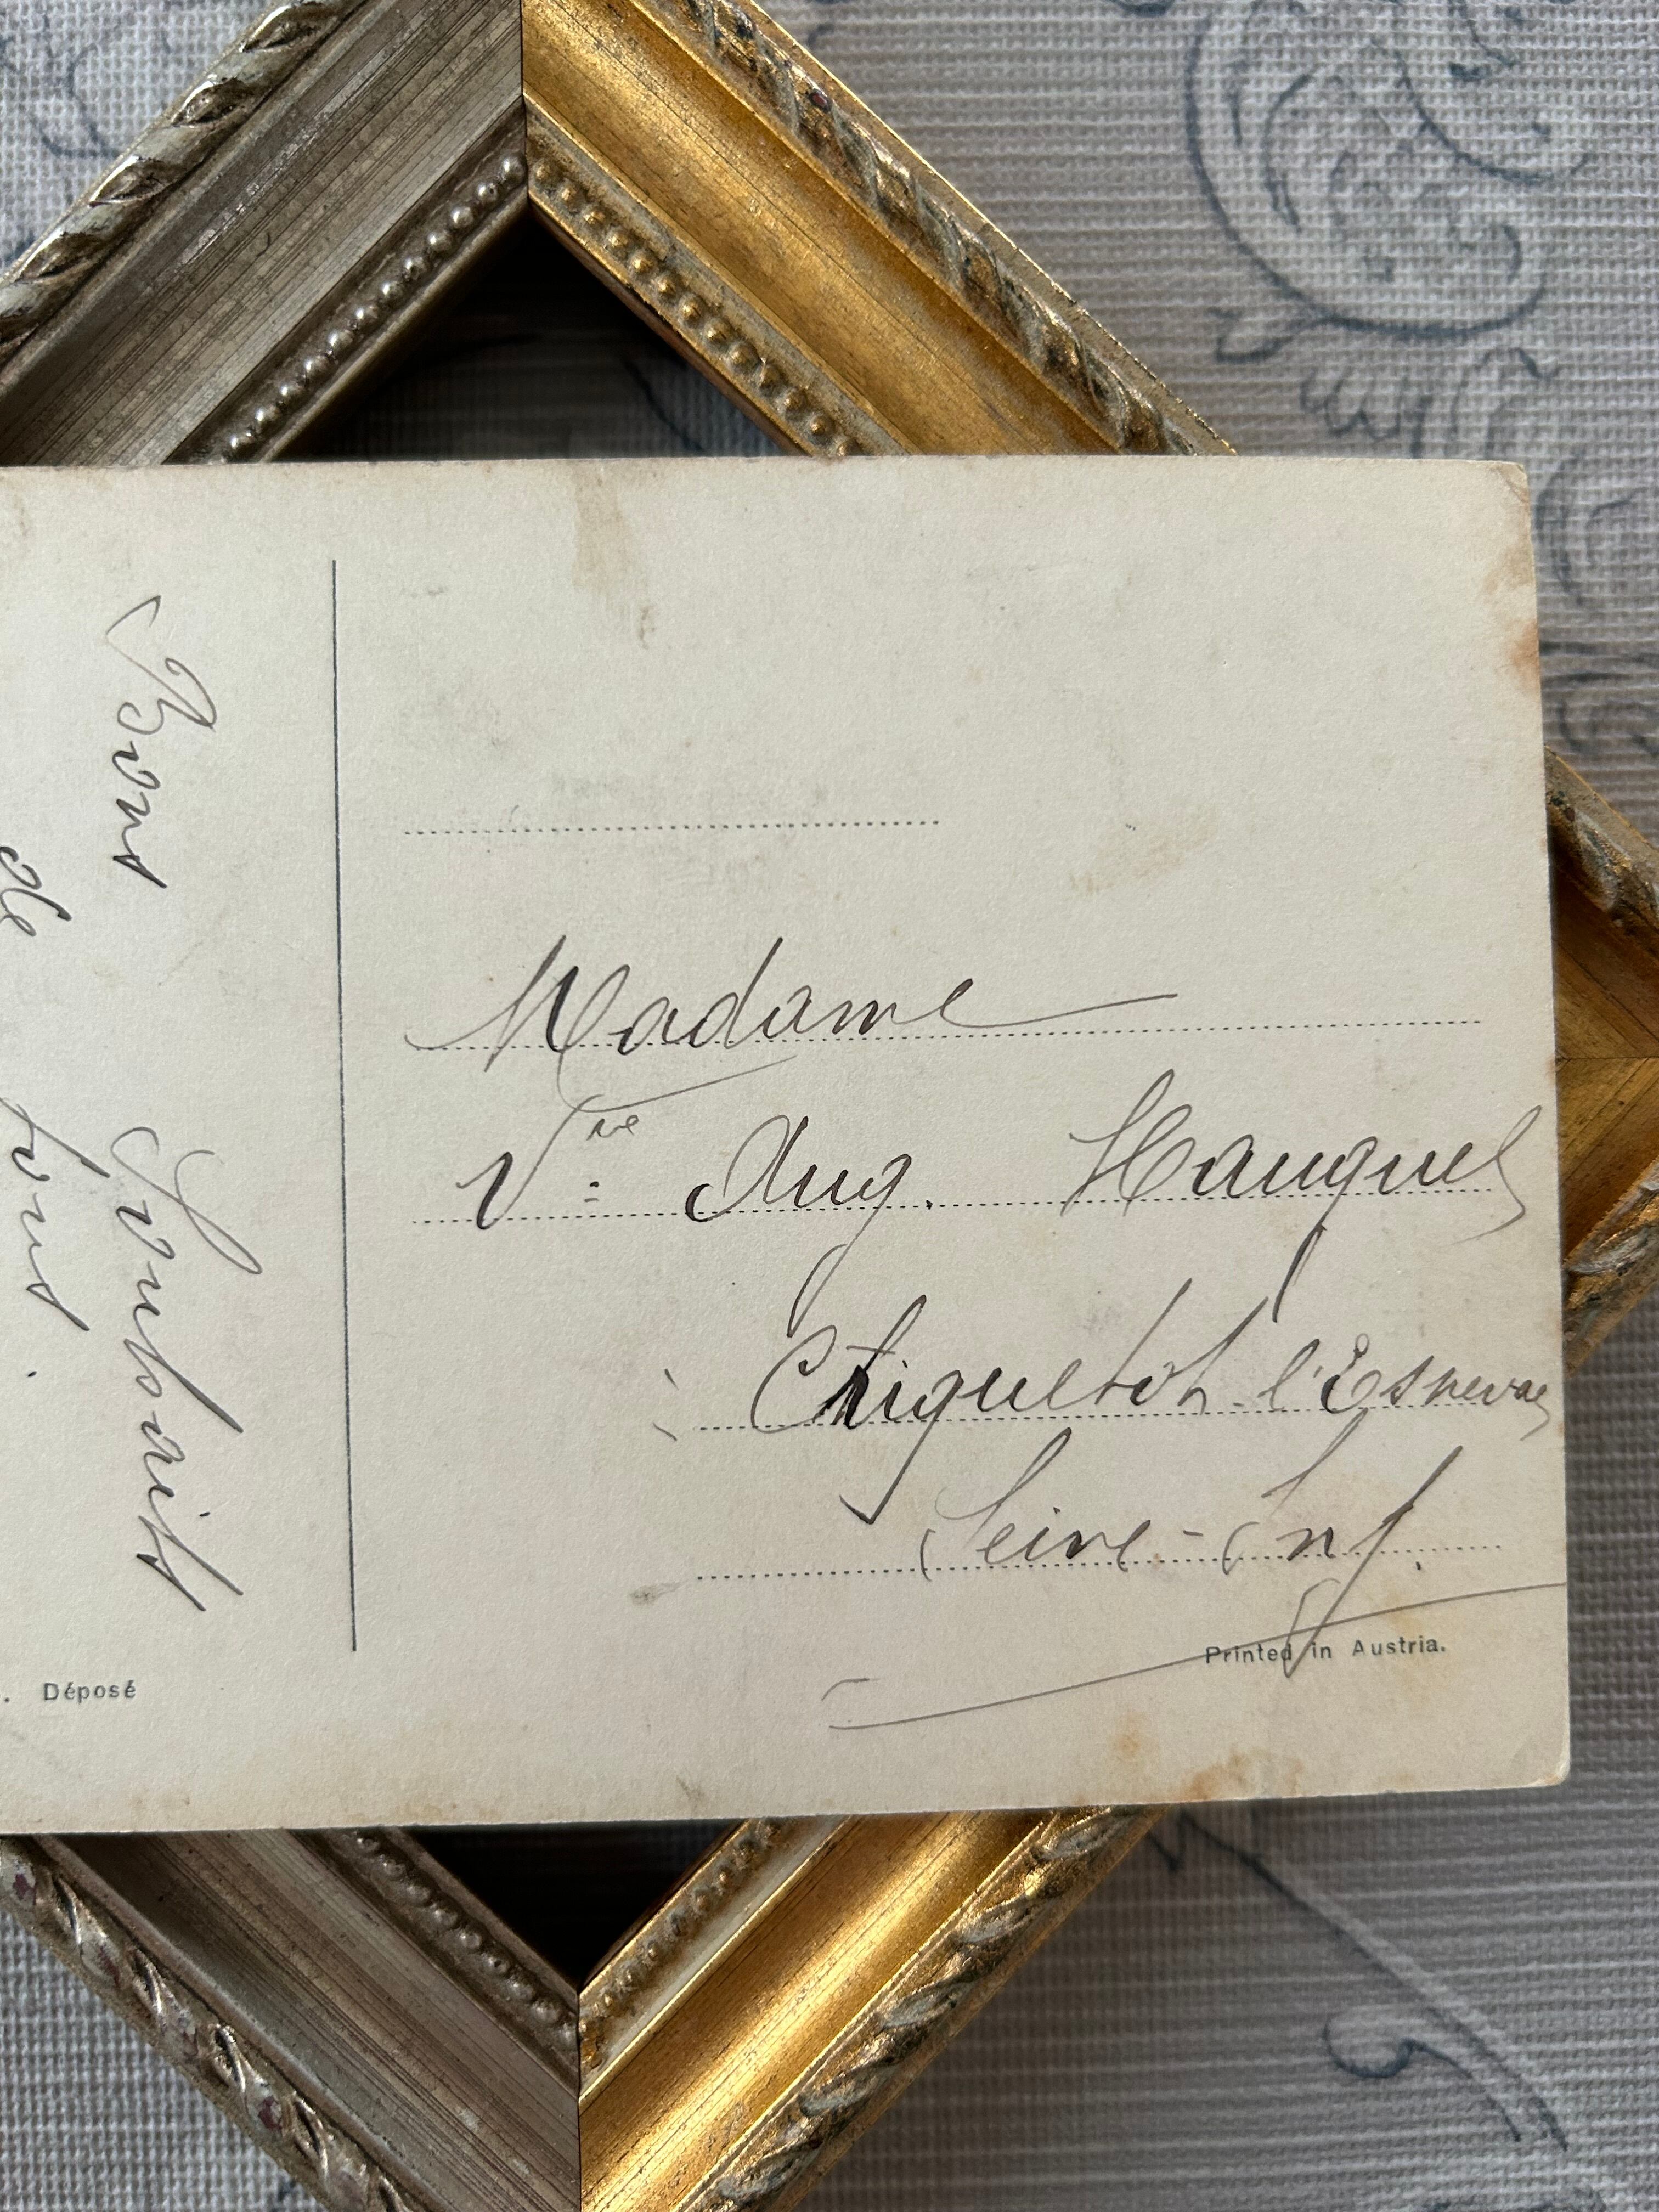 Bons Souhaits
de tous.
Madame
Vve Aug. Hauguel
Criquetot l'Esneval
Seine-Inf.
Printed in Austria.
. Déposé